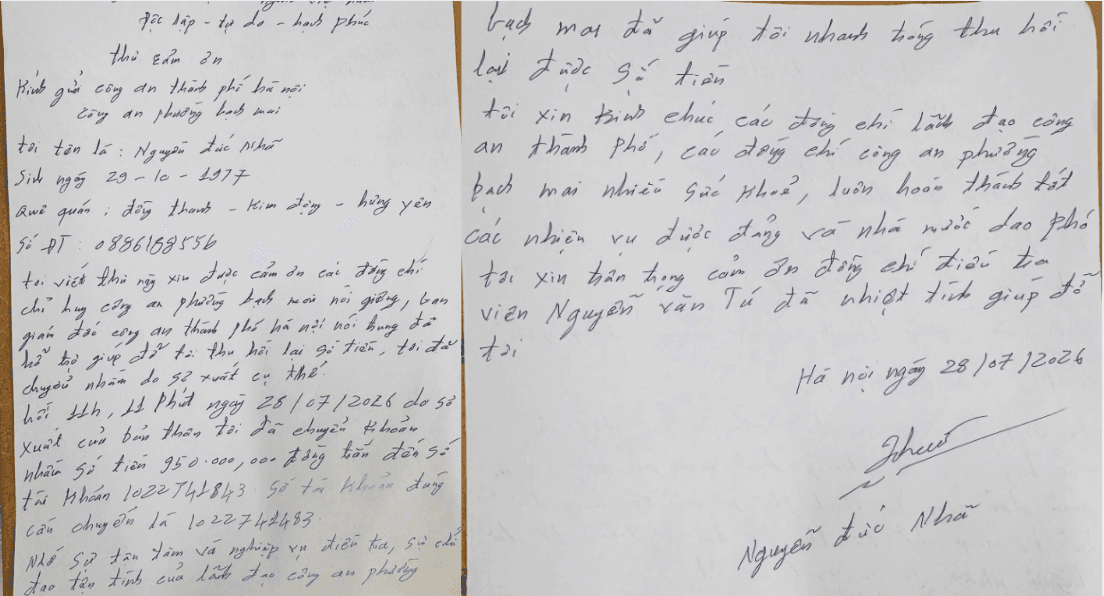 Độc lập - tự do - hạnh phúc
thư cảm ơn
Kính gửi công an thành phố hà nội
công an phường bạch mai
tôi tên là : Nguyễn đức Nhã
Sinh ngày 29 - 10 - 1977
Quê quán : đồng thanh - Kim động - hưng yên
Số ĐT : 0886188556
tôi viết thư này xin được cảm ơn các đồng chí
chỉ huy công an phường bạch mai nói giêng, ban
giám đốc công an thành phố hà nội nói chung đã
hỗ trợ giúp đỡ tôi thu hồi lại số tiền, tôi đã
chuyển nhầm do sơ xuất cụ thể.
hồi 11h, 11 phút ngày 28/07/2026 do sơ
xuất của bản thân tôi đã chuyển khoản
nhầm số tiền 950.000,000 đồng đến số
tài khoản 1022741843. Số tài khoản đúng
cần chuyển là 1022741483.
Nhờ sự tân tâm và nghiệp vụ điều tra, sự chỉ
đạo tận tình của lãnh đạo công an phường
bạch mai đã giúp tôi nhanh tróng thu hồi
lại được số tiền
tôi xin kính chúc các đồng chí lãnh đạo công
an thành phố, các đồng chí công an phường
bạch mai nhiều sức khoẻ, luôn hoàn thành tốt
các nhiện vụ được đảng và nhà nước dao phó
tôi xin trân trọng cảm ơn đồng chí điều tra
viên Nguyễn văn Tú đã nhiệt tình giúp đỡ
tôi
Hà nội ngày 28/07/2026
Nguyễn đức Nhã